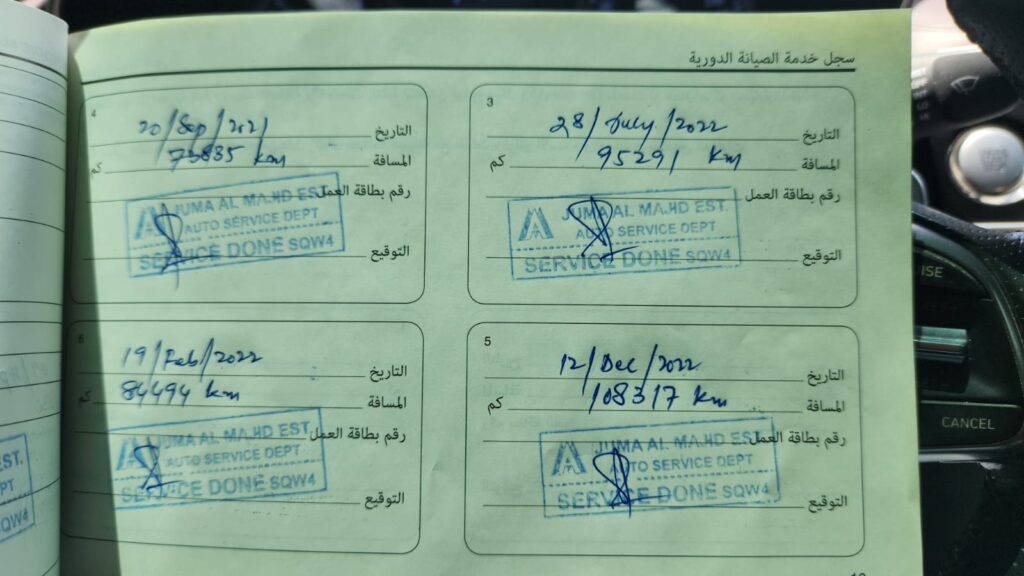 سجل خدمة الصيانة الدورية
3
التاريخ 28/July/2022
المسافة 95291 km كم
رقم بطاقة العمل
JUMA AL MAJID EST.
AUTO SERVICE DEPT
SERVICE DONE SQW4
التوقيع
4
التاريخ 20/Sep/2021
المسافة 73835 km كم
رقم بطاقة العمل
JUMA AL MAJID EST.
AUTO SERVICE DEPT
SERVICE DONE SQW4
التوقيع
5
التاريخ 12/Dec/2022
المسافة 108317 km كم
رقم بطاقة العمل
JUMA AL MAJID EST.
AUTO SERVICE DEPT
SERVICE DONE SQW4
التوقيع
6
التاريخ 19/Feb/2022
المسافة 84494 km كم
رقم بطاقة العمل
JUMA AL MAJID EST.
AUTO SERVICE DEPT
SERVICE DONE SQW4
التوقيع
EST.
PT
SQW4
CANCEL